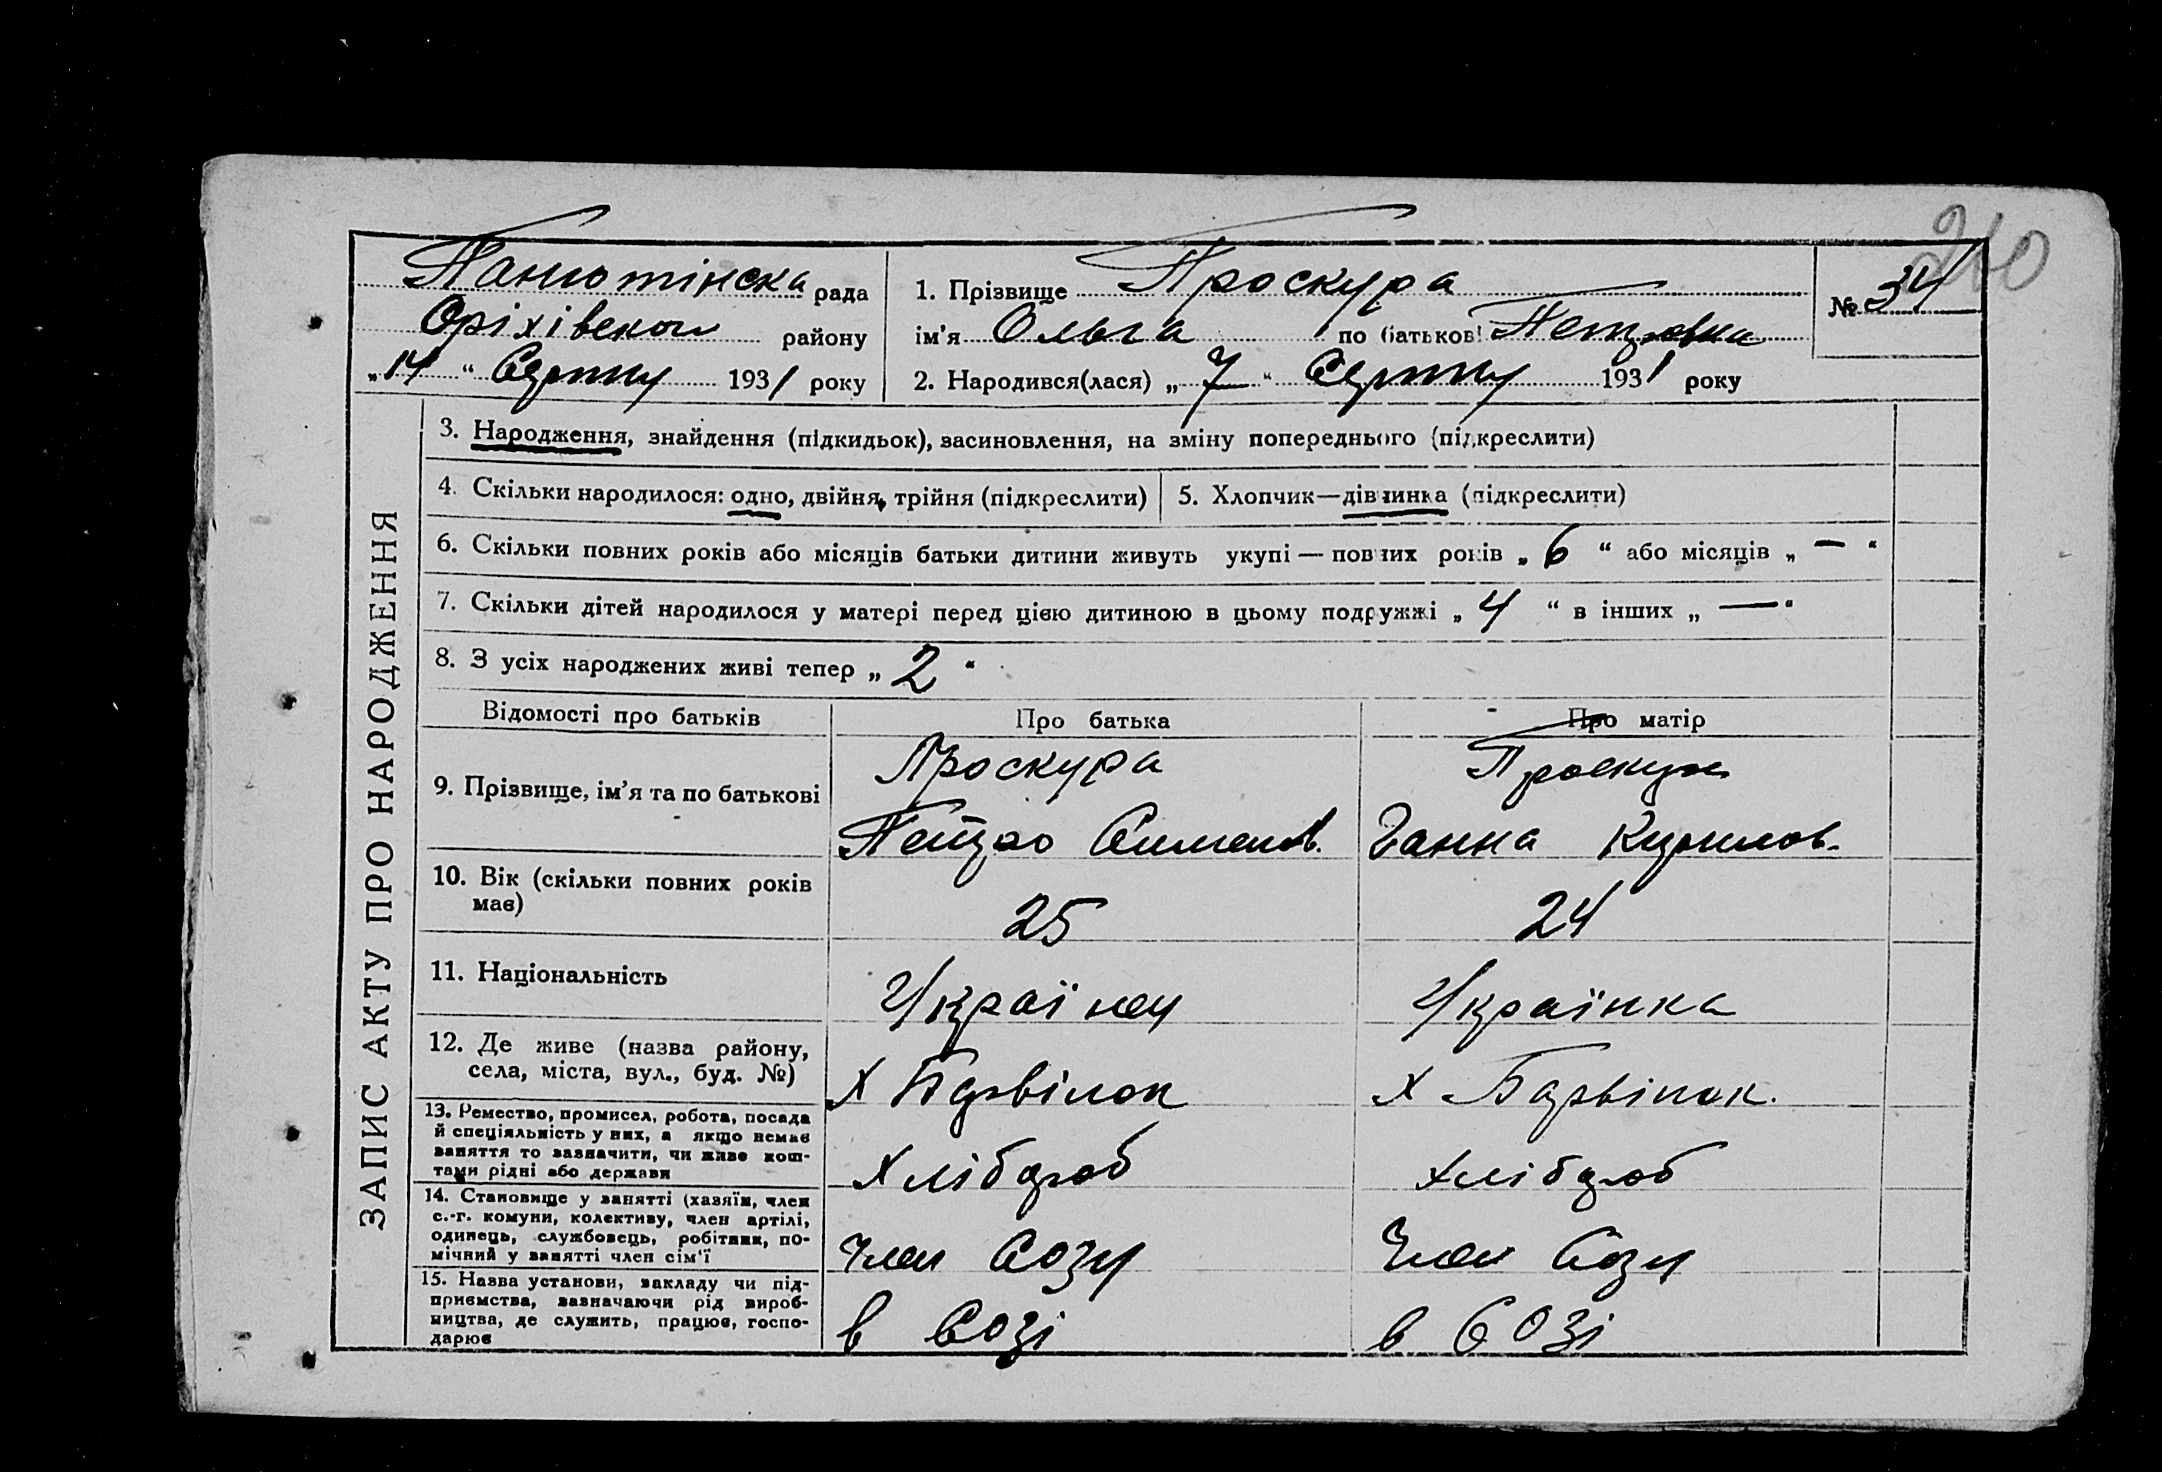 210
Панютінска рада
Оріхівском району
„14“ Серпну 1931 року
1. Прізвище Проскура
ім'я Ольга по батькові Петровна
2. Народився(лася) „7“ Серпну 1931 року
№ 34
ЗАПИС АКТУ ПРО НАРОДЖЕННЯ
3. Народження, знайдення (підкидьок), засиновлення, на зміну попереднього (підкреслити)
4. Скільки народилося: одно, двійня, трійня (підкреслити)
5. Хлопчик—дівчинка (підкреслити)
6. Скільки повних років або місяців батьки дитини живуть укупі — повних років „6“ або місяців „—“
7. Скільки дітей народилося у матері перед цією дитиною в цьому подружжі „4“ в інших „—“
8. З усіх народжених живі тепер „2“
Відомості про батьків Про батька Про матір
9. Прізвище, ім'я та по батькові
Проскура
Петро Симонов.
Проскура
Ганна Курилов.
10. Вік (скільки повних років
має)
25
24
11. Національність
Українец
Українка
12. Де живе (назва району,
села, міста, вул., буд. №)
Х Барвінок
Х Барвінок.
13. Ремество, промисел, робота, посада
й спеціяльність у них, а якщо немає
заняття то зазначити, чи живе кош-
тами рідні або держави
Хлібороб
Хлібороб
14. Становище у занятті (хазяїн, член
с.-г. комуни, колективу, член артілі,
одинець, службовець, робітник, по-
мічний у занятті член сім'ї
Член Созу
Член Созу
15. Назва установи, закладу чи під-
приємства, зазначаючи рід вироб-
ництва, де служить, працює, госпо-
дарює
в Созі
в СОЗі